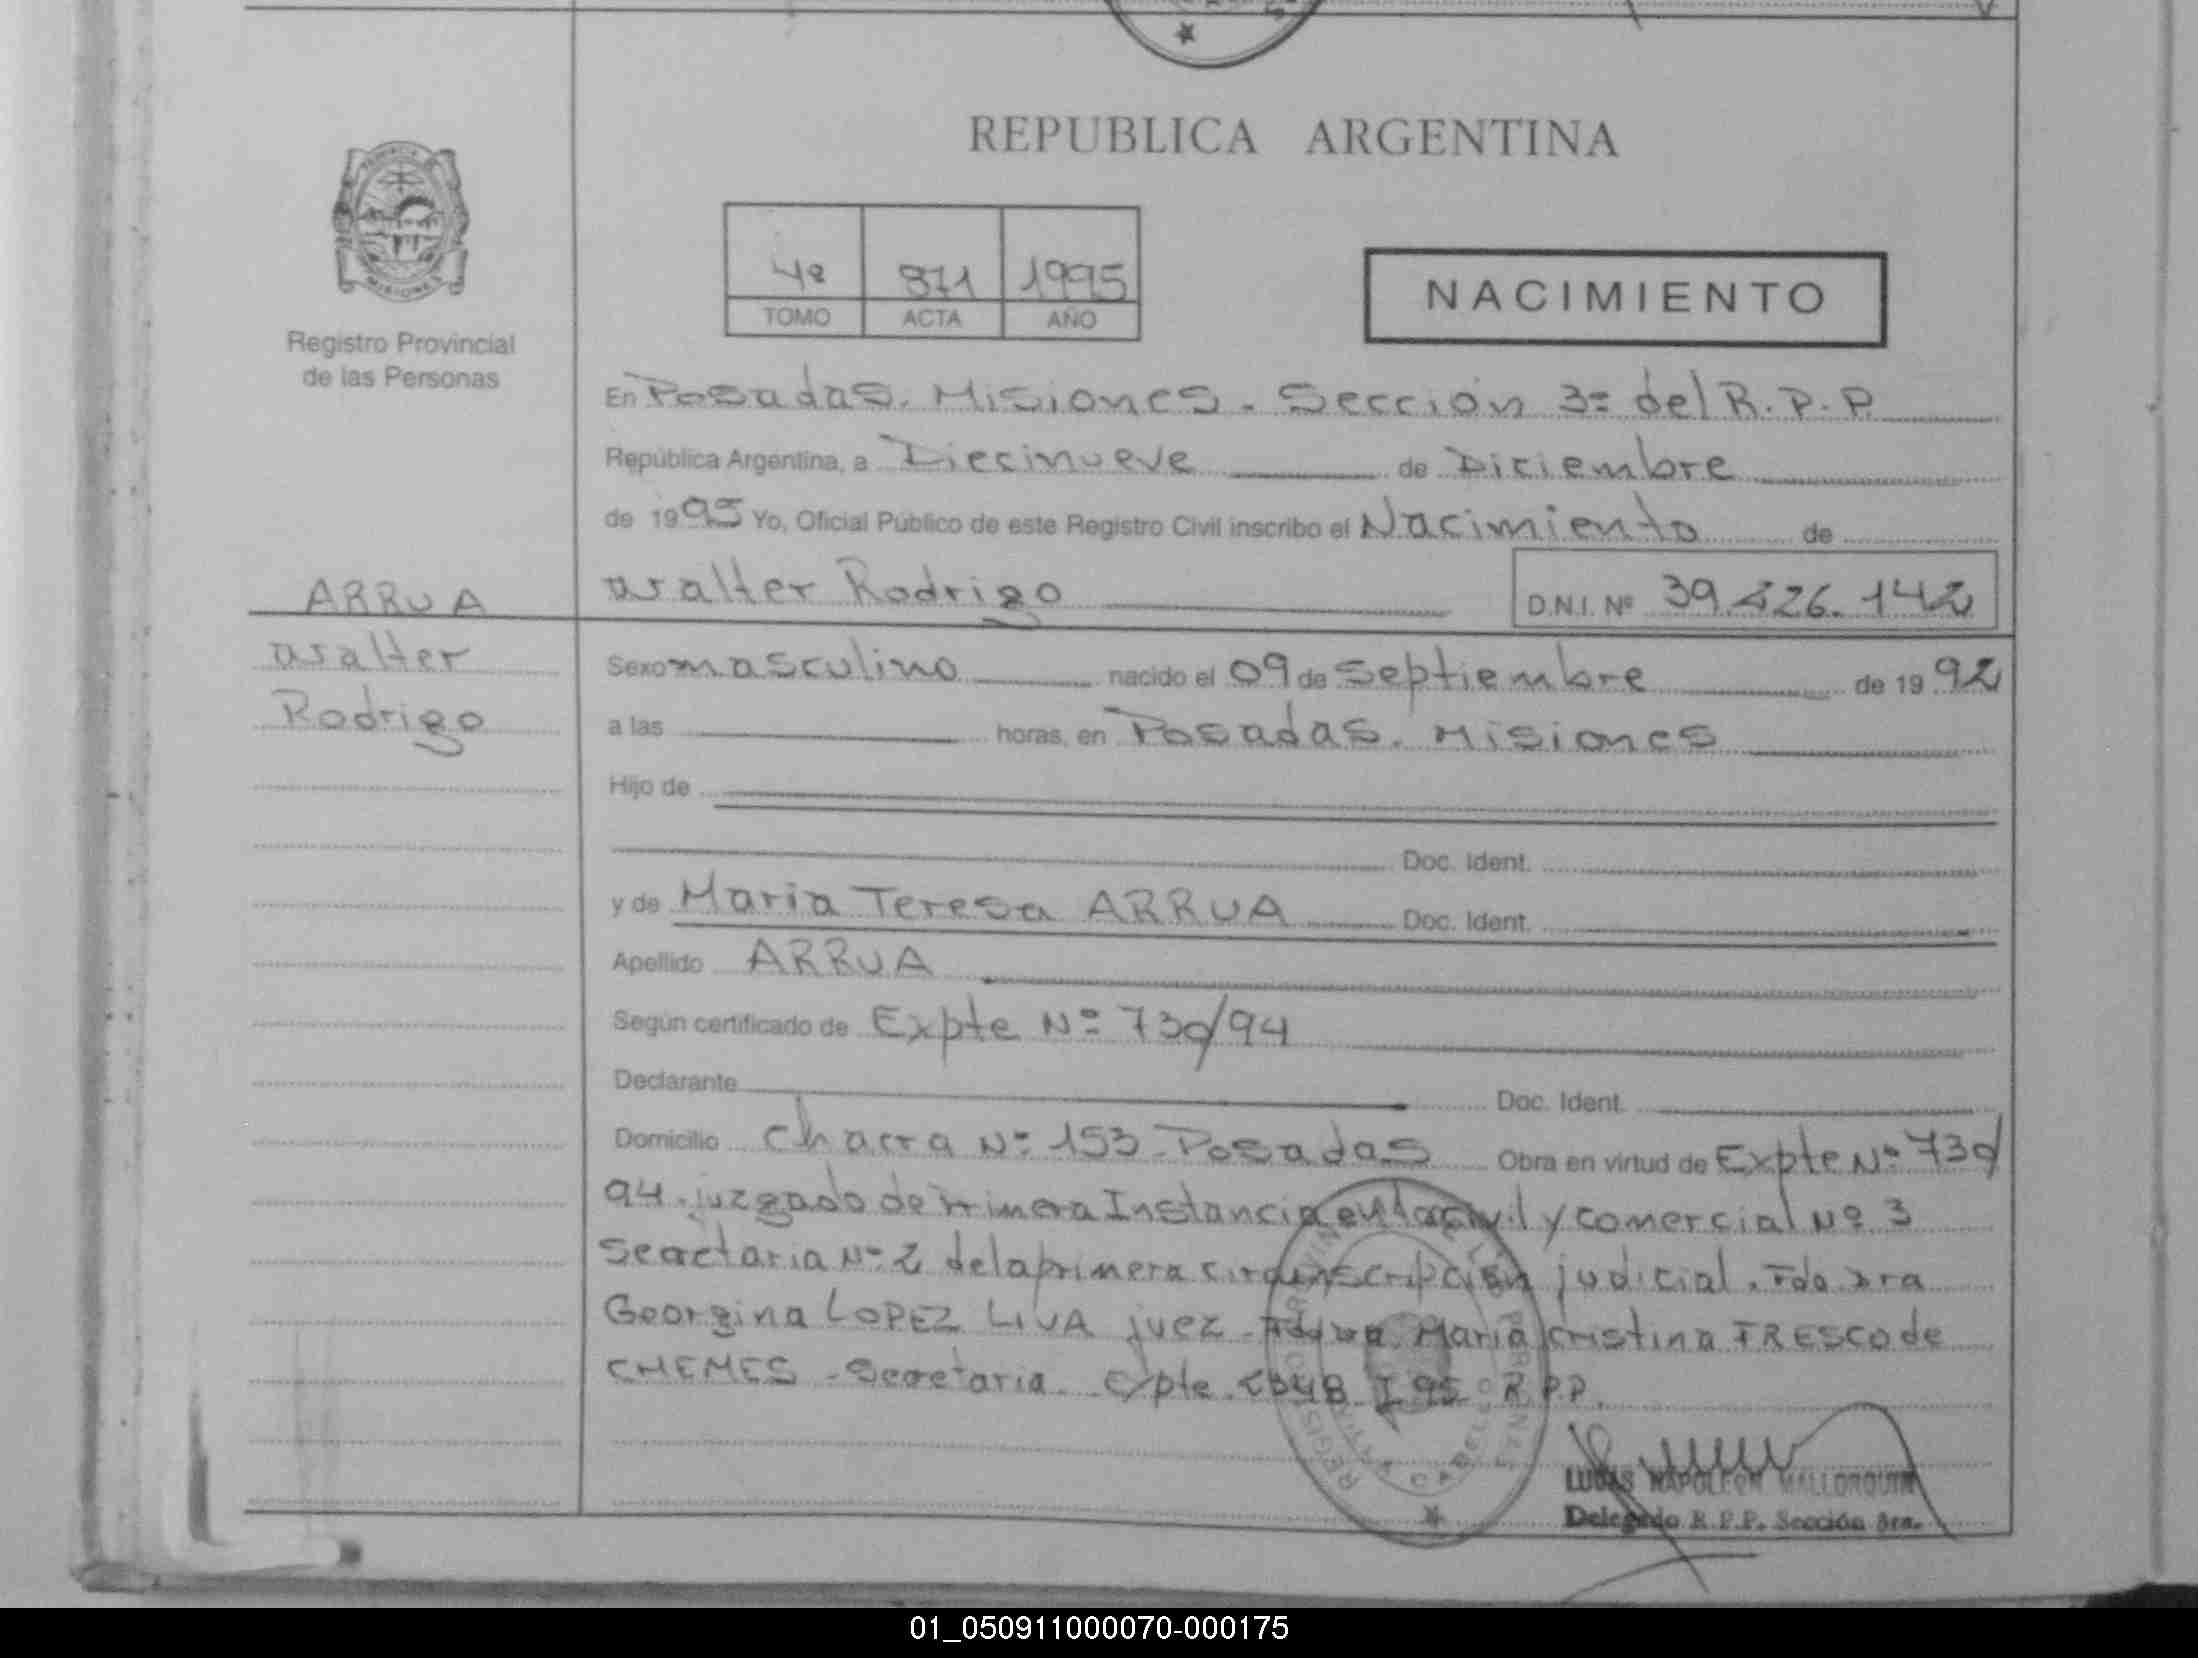 REPUBLICA ARGENTINA
PROVINCIA
MISIONES
Registro Provincial
de las Personas
4º 871 1995
TOMO ACTA AÑO
NACIMIENTO
En Posadas. Misiones. Sección 3ª del R.P.P.
República Argentina, a Diecinueve de Diciembre
de 1995 Yo, Oficial Público de este Registro Civil inscribo el Nacimiento de
Walter Rodrigo D.N.I. Nº 39.226.142
ARRUA
Walter
Rodrigo
Sexo masculino nacido el 09 de Septiembre de 1992
a las horas, en Posadas. Misiones
Hijo de
Doc. Ident.
y de Maria Teresa ARRUA Doc. Ident.
Apellido ARRUA
Según certificado de Expte Nº 730/94
Declarante Doc. Ident.
Domicilio Chacra Nº 153 - Posadas Obra en virtud de Expte Nº 730/
94. juzgado de Primera Instancia en lo civil y comercial Nº 3
Secretaria Nº 2 de la primera circunscripción judicial. Fdo Dra
Georgina LOPEZ LIVA juez - Maria Cristina FRESCO de
CHEMES - Secretaria. Expte 95 R.P.P.
LUCAS NAPOLEON MALLORQUIN
Delegado R.P.P. Sección 3ra.
01_050911000070-000175